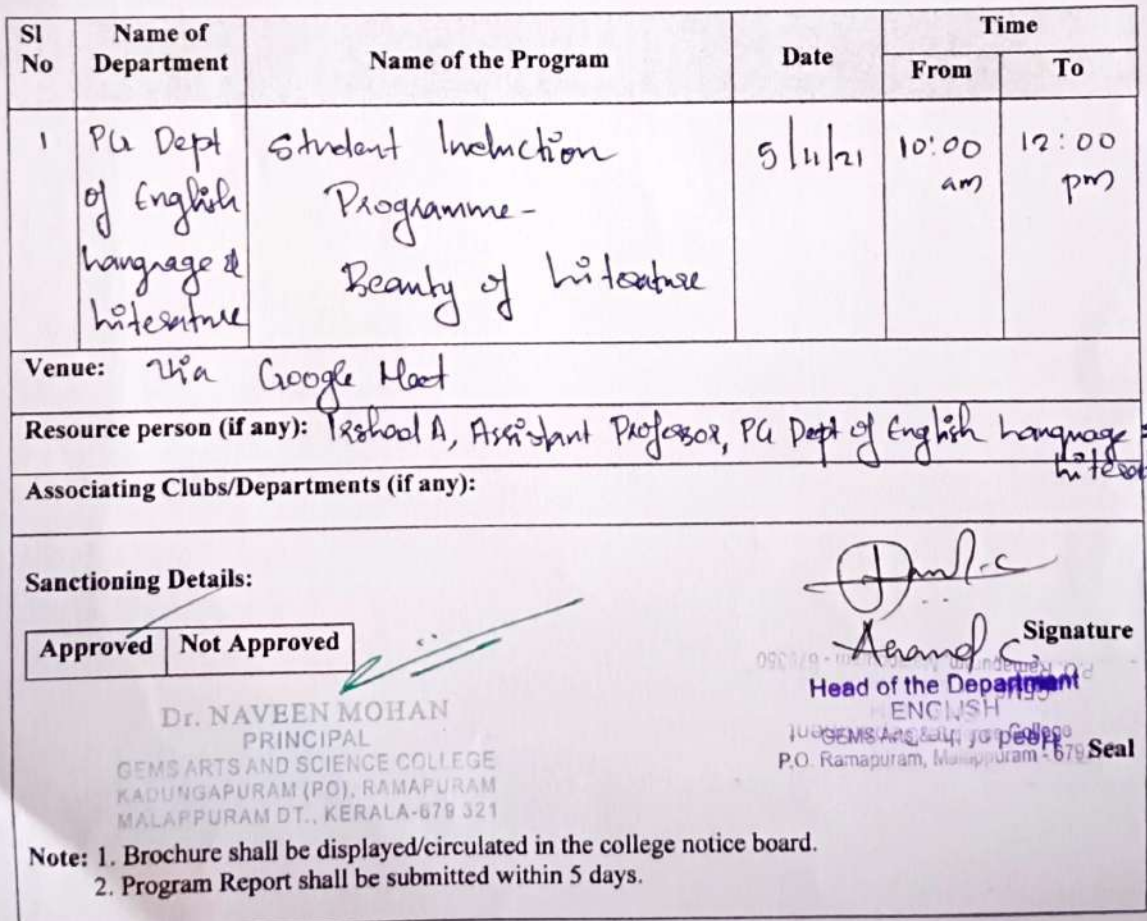 Sl No
Name of Department
Name of the Program
Date
Time
From
To
1
PG Dept of English Language & Literature
Student Induction
Programme-
Beauty of Literature
5/11/21
10:00 am
12:00 pm
Venue: Via Google Meet
Resource person (if any): Irshad A, Assistant Professor, PG Dept of English Language
Associating Clubs/Departments (if any):
Sanctioning Details:
Approved
Not Approved
Anand C.
Signature
Head of the Department
ENGLISH
P.O. Ramapuram, Malappuram - 679
Seal
Dr. NAVEEN MOHAN
PRINCIPAL
GEMS ARTS AND SCIENCE COLLEGE
KADUNGAPURAM (PO), RAMAPURAM
MALAPPURAM DT., KERALA-679 321
Note: 1. Brochure shall be displayed/circulated in the college notice board.
2. Program Report shall be submitted within 5 days.